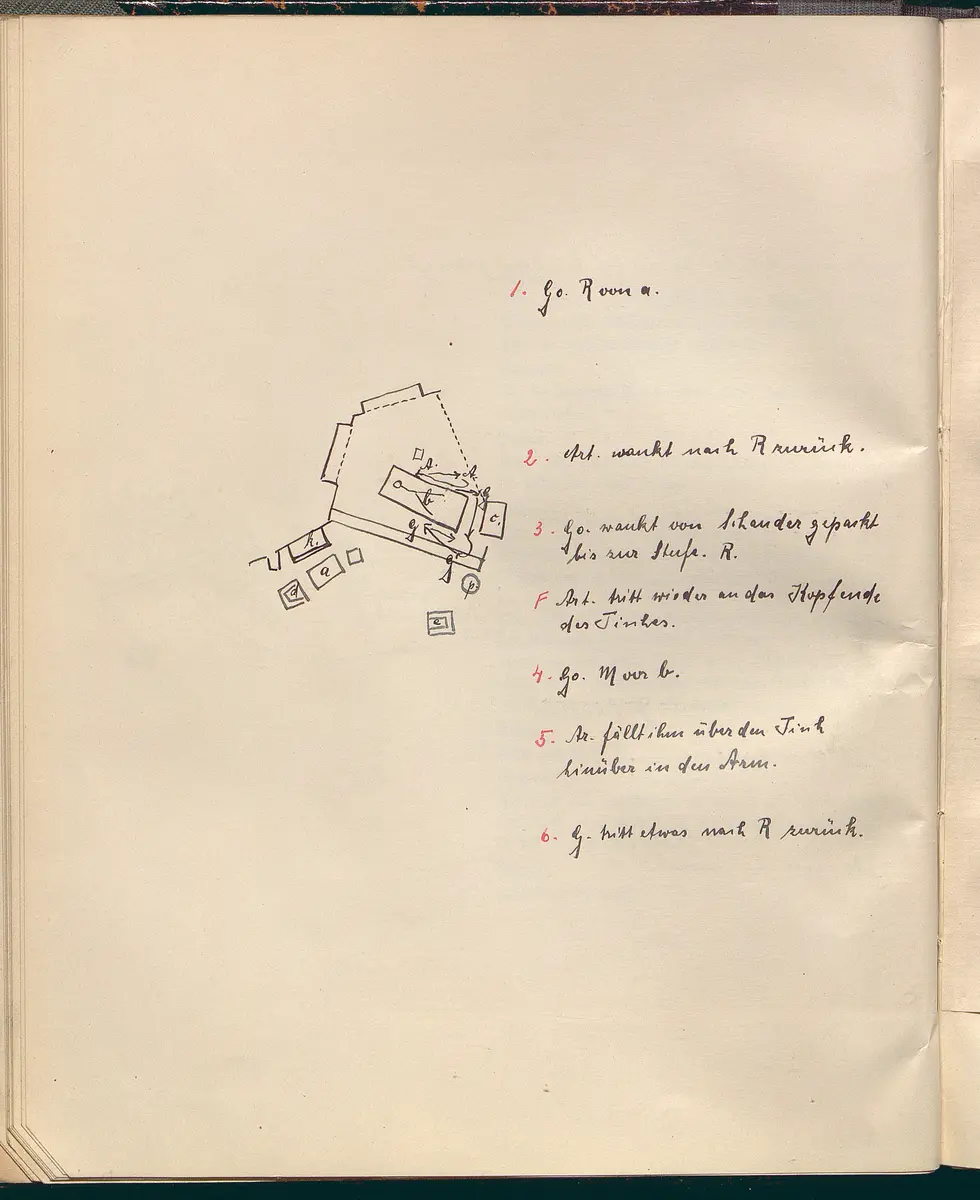 1. Go. R von a.
2. Art. wankt nach R zurück.
3. Go. wankt von Schauder gepackt
bis zur Stufe. R.
F Art. tritt wieder an das Kopfende
des Tisches.
4. Go. M vor b.
5. Ar. fällt ihm über den Tisch
hinüber in den Arm.
6. G. tritt etwas nach R zurück.
A. A.
b
G
c.
G
h.
a
d
G
p
e